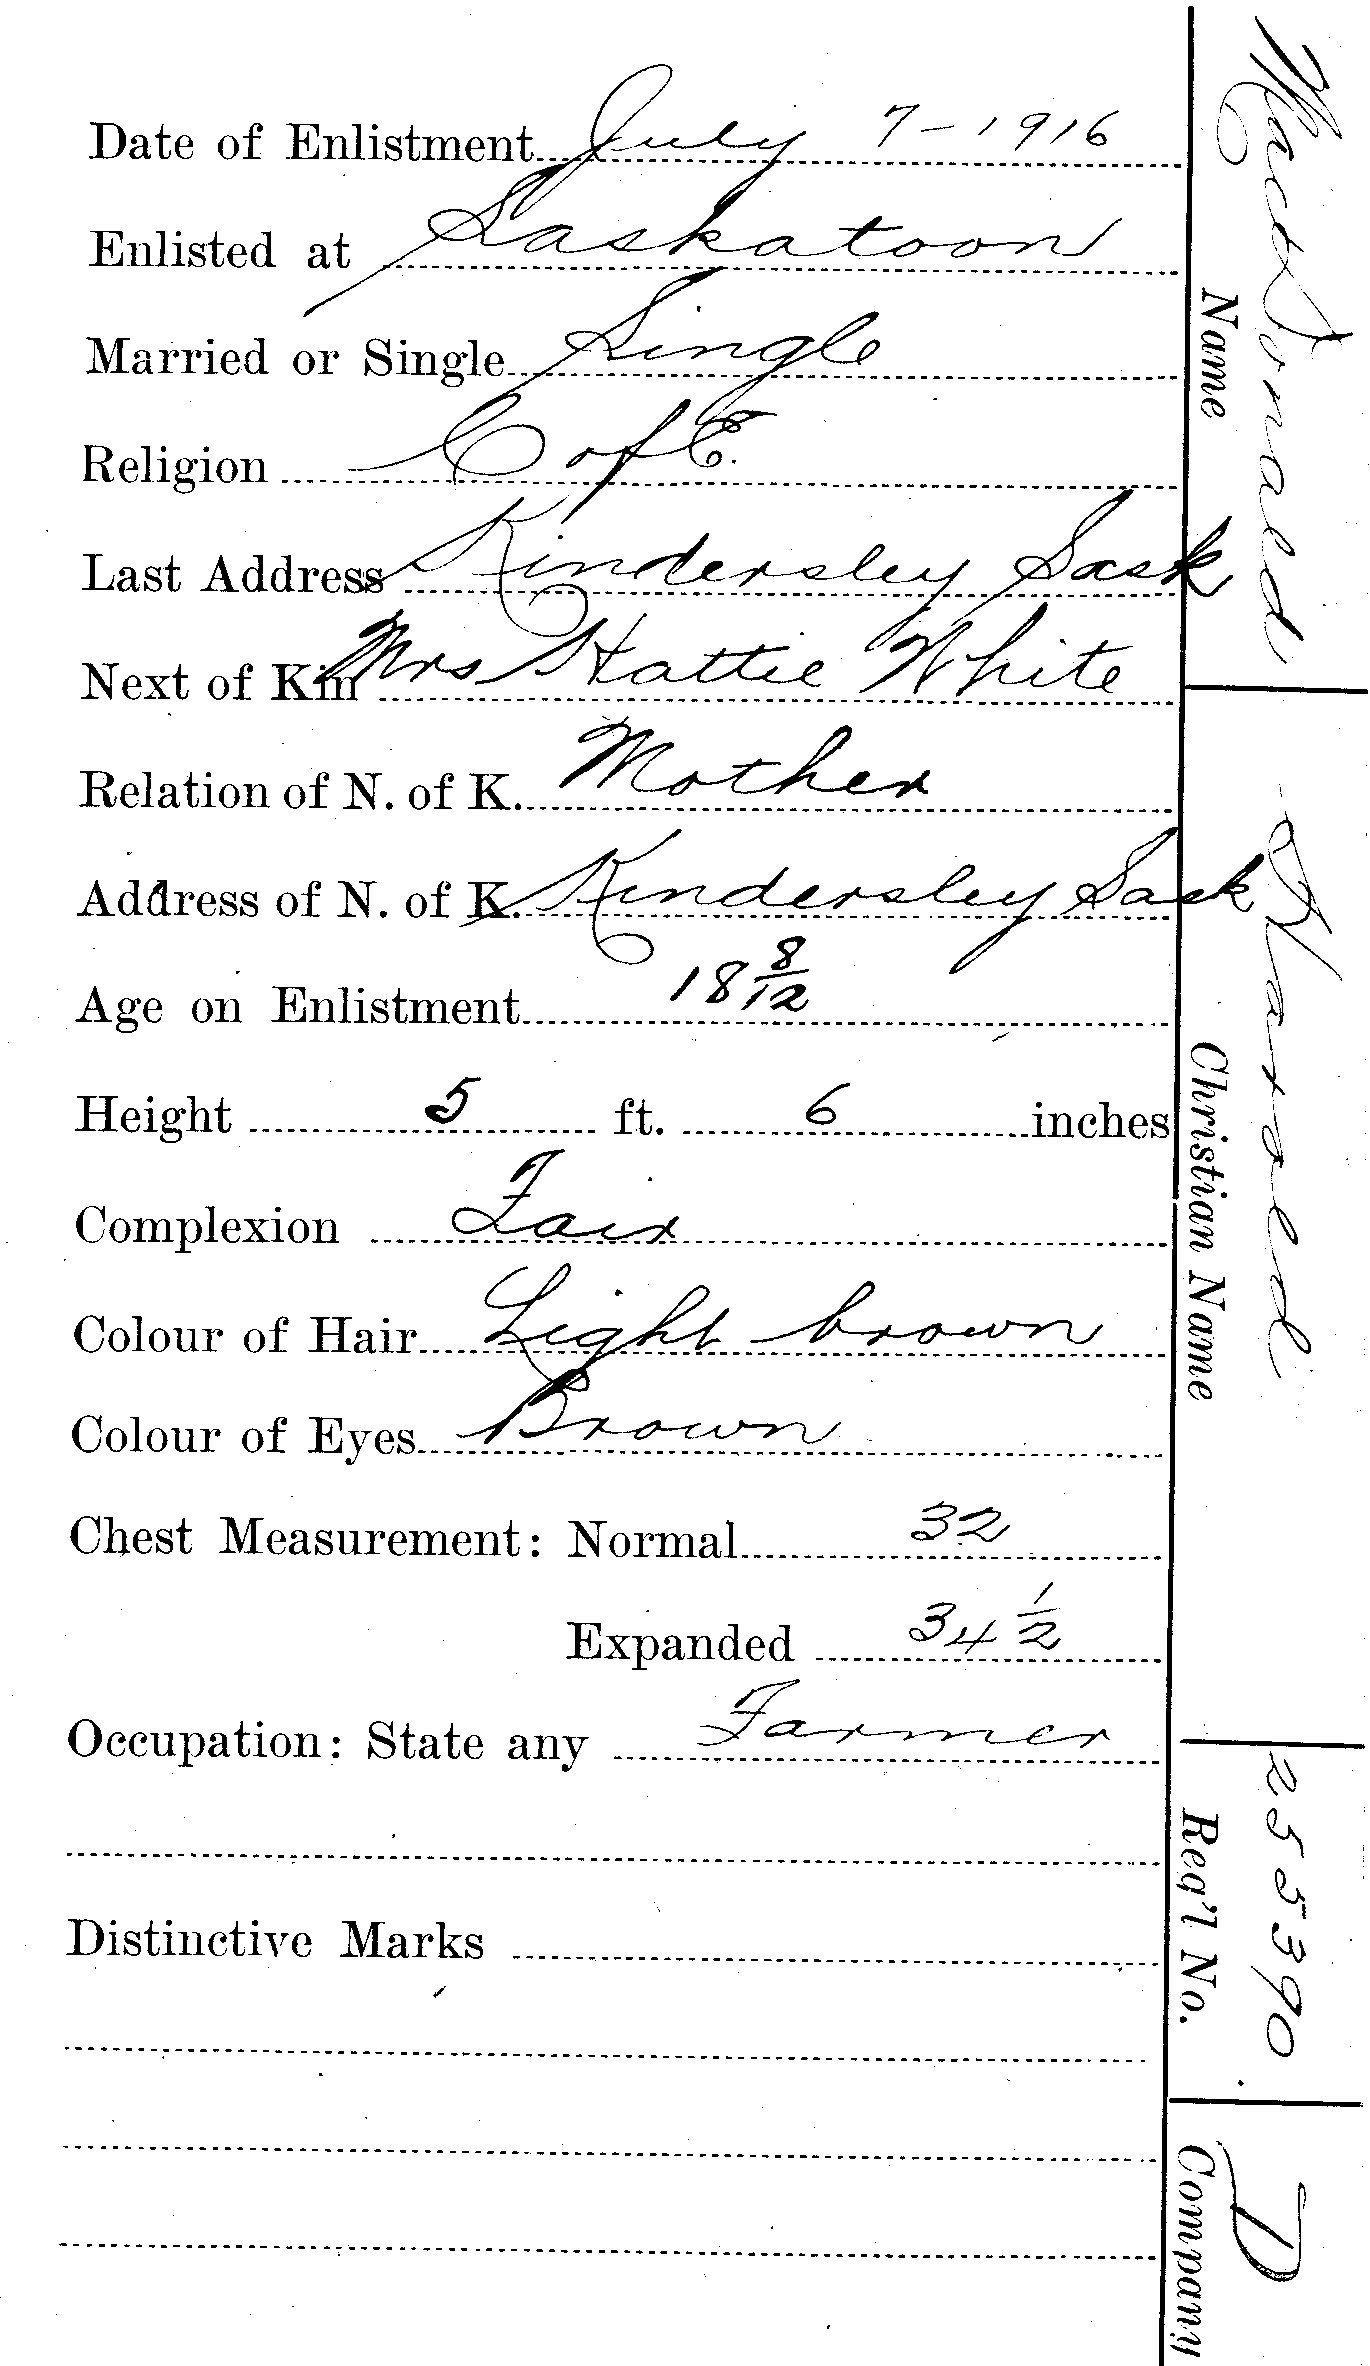 Date of Enlistment July 7-1916
Enlisted at Saskatoon
Married or Single Single
Religion C of E.
Last Address Kindersley Sask
Next of Kin Mrs Hattie White
Relation of N. of K. Mother
Address of N. of K. Kindersley Sask
Age on Enlistment 18 8/12
Height 5 ft. 6 inches
Complexion Fair
Colour of Hair Light brown
Colour of Eyes Brown
Chest Measurement: Normal 32
Expanded 34 1/2
Occupation: State any Farmer
Distinctive Marks
MacDonald Harold 255390 D
Name Christian Name Reg'l No. Company